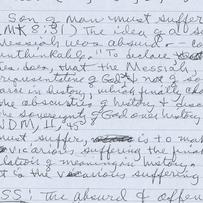 Son of Man must suffer
(MK 8:31) The idea of a s
Messiah was absurd — co
unthinkable. "To declare
does, that the Messiah,
representative of God & not of
in history, which finally
the absurdities of history, & disc
the sovereignty of God over history
NDM, II, 45
must suffer, is to make
vicarious suffering the final
of meaning in history.
the vicarious suffering
SS: The absurd & offen